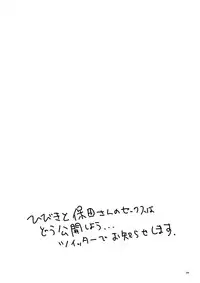 ひびきと保田さんのセックスは
どう公開しよう...
ツイッターでお知らせします.